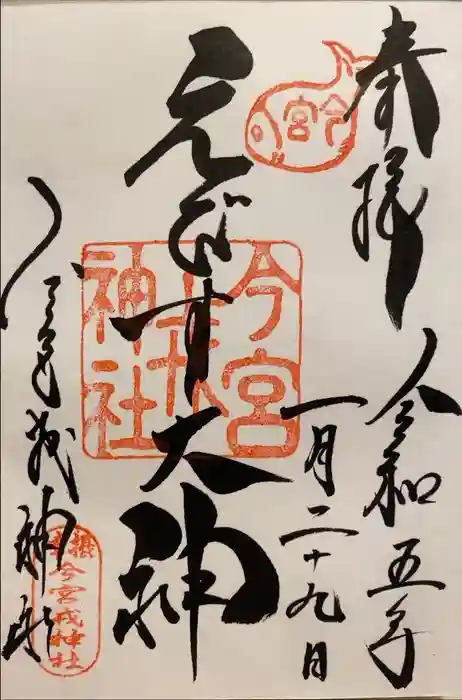 奉拝
令和五年
一月二十九日
えびす大神
今宮戎神社
今宮
今宮戎神社
摂
今宮戎神社